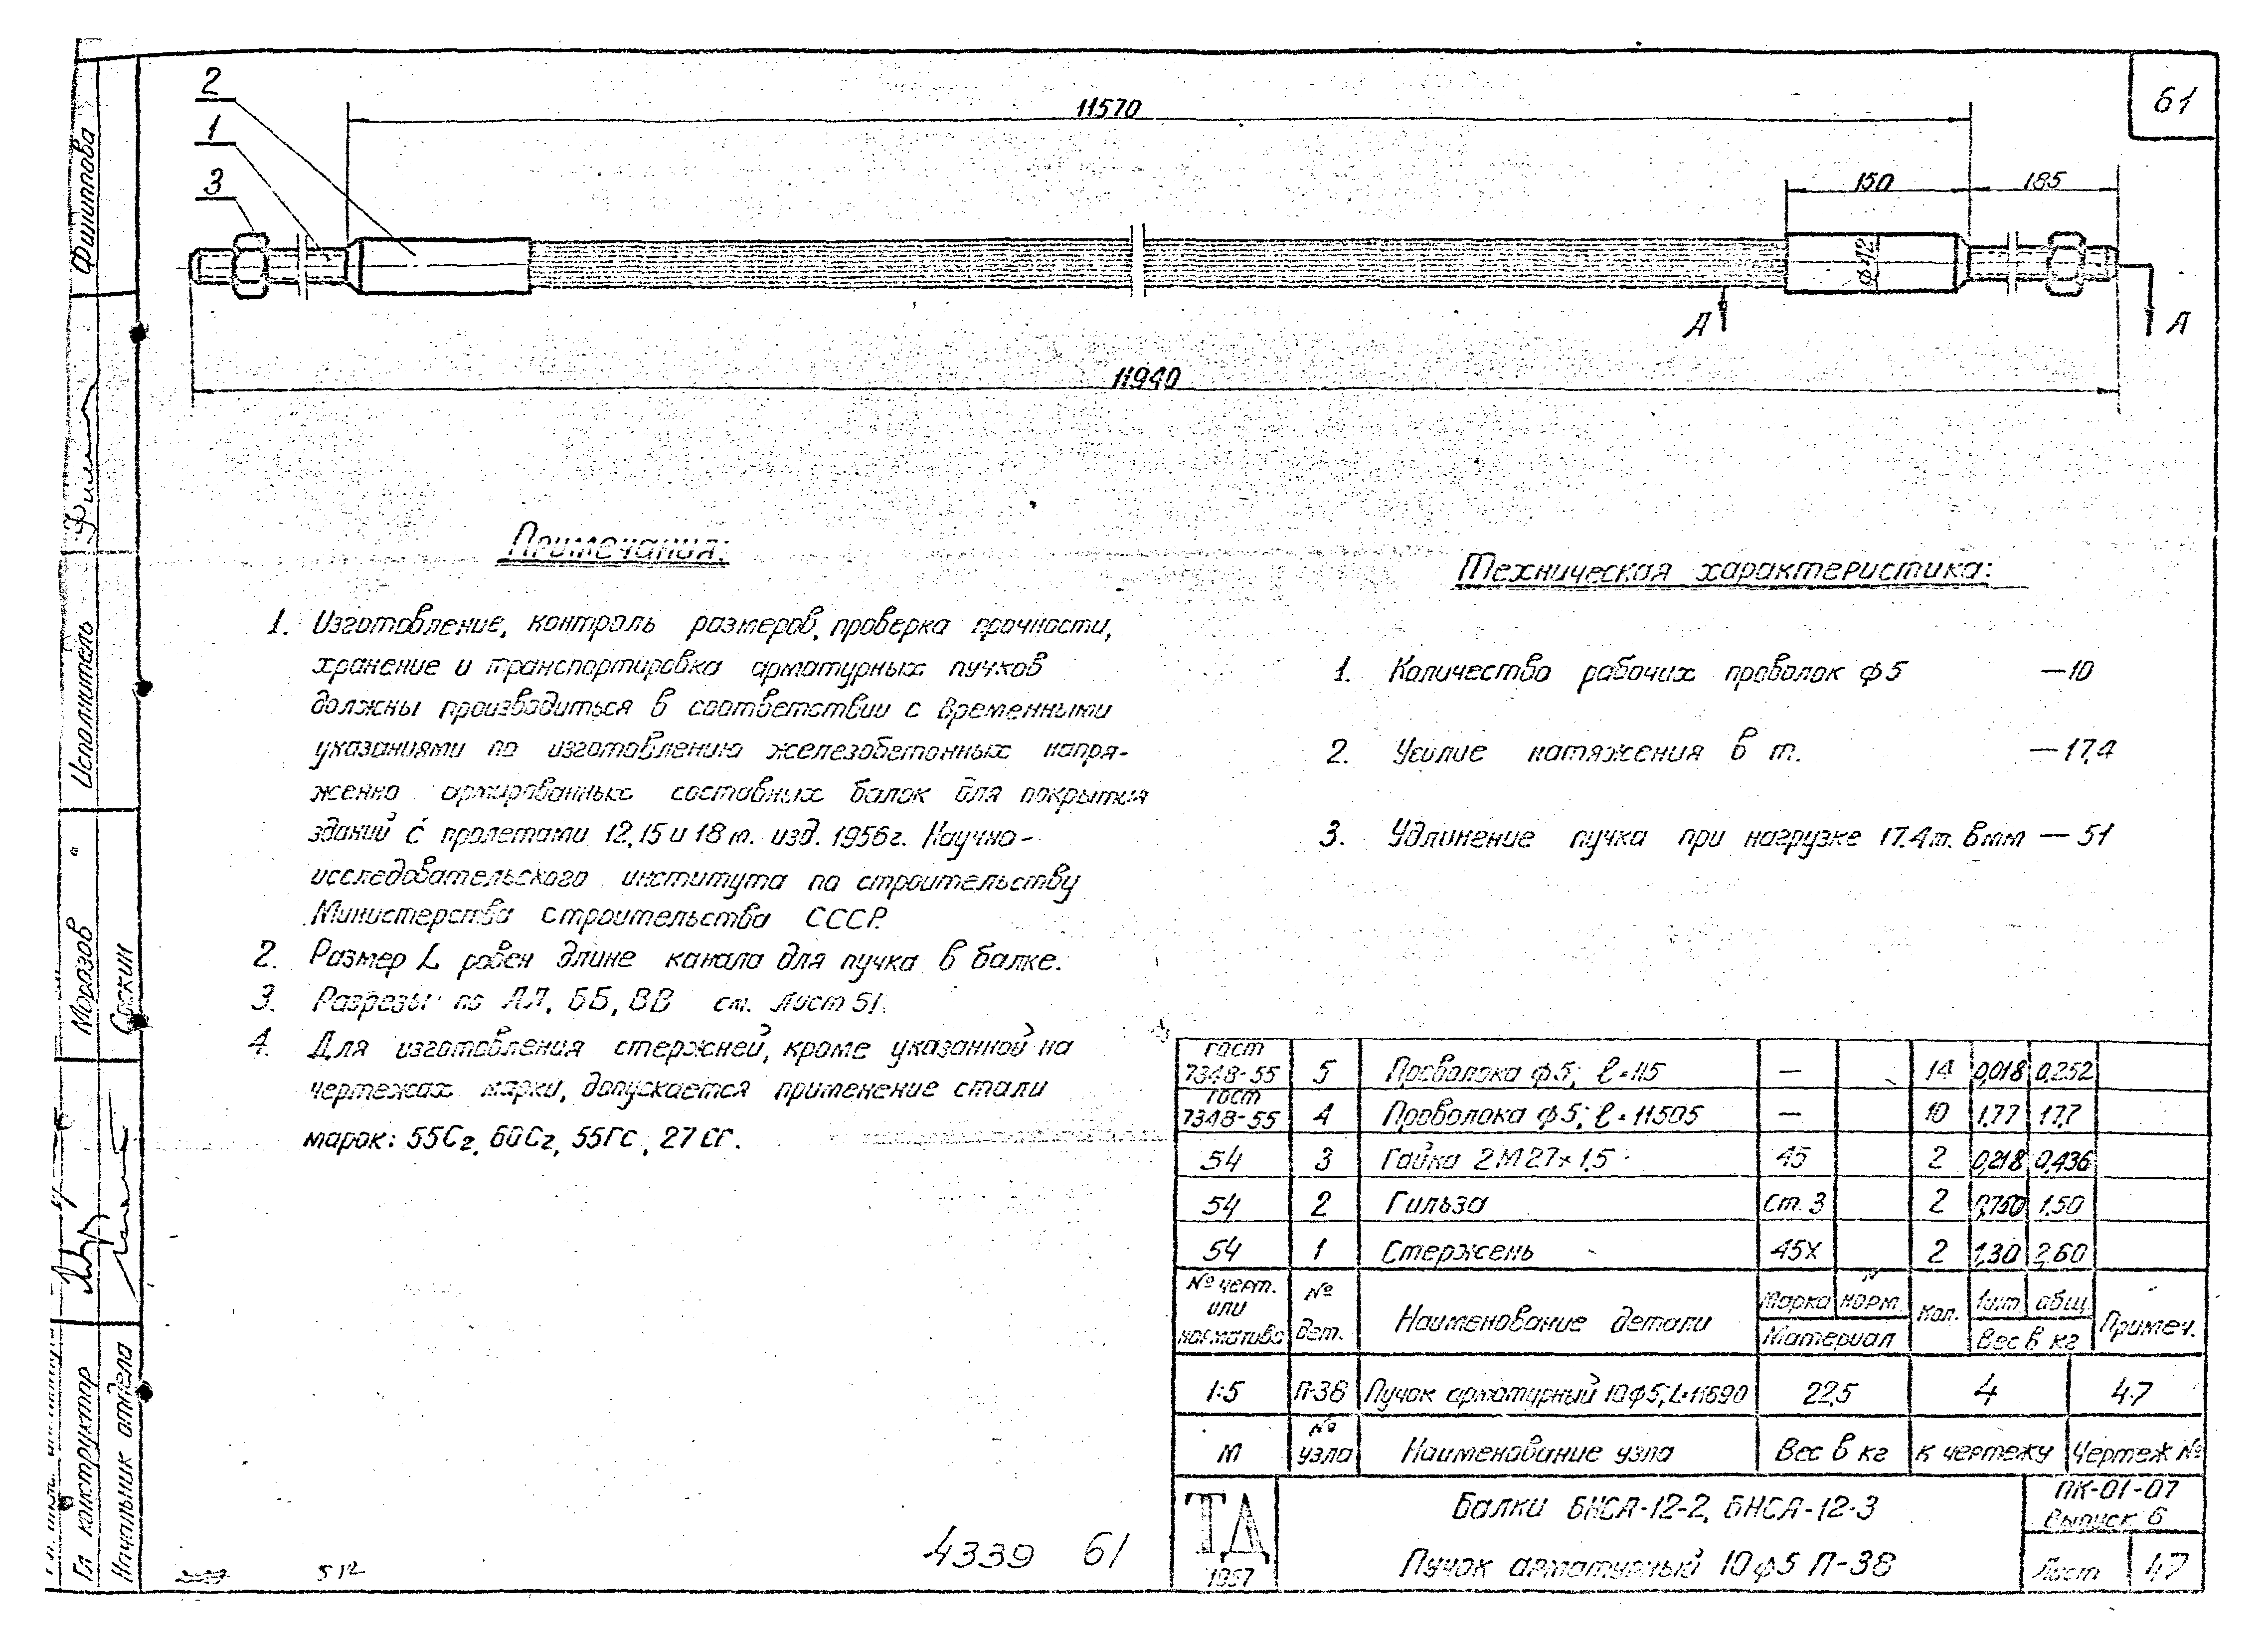 61
2
1
3
11570
150
185
ф42
А
А
11940
Примечания:
1. Изготовление, контроль размеров, проверка прочности,
хранение и транспортировка арматурных пучков
должны производиться в соответствии с временными
указаниями по изготовлению железобетонных напря-
женно армированных составных балок для покрытия
зданий с пролетами 12,15 и 18 м. изд. 1956г. Научно-
исследовательского института по строительству
Министерства строительства СССР.
2. Размер L равен длине канала для пучка в балке.
3. Разрезы по АА, ББ, ВВ см. лист 51.
4. Для изготовления стержней, кроме указанной на
чертежах марки, допускается применение стали
марок: 55Сг, 60Сг, 55ГС, 27СГ.
Техническая характеристика:
1. Количество рабочих проволок ф5 —10
2. Усилие натяжения в т. —17,4
3. Удлинение пучка при нагрузке 17.4т. в мм — 51
гост 7348-55 5 Проволока ф5; ℓ=115 — 14 0,018 0,252
гост 7348-55 4 Проволока ф5; ℓ=11505 — 10 1,77 17,7
54 3 Гайка 2М27×1,5 45 2 0,218 0,436
54 2 Гильза Ст. 3 2 0,750 1.50
54 1 Стержень 45Х 2 1,30 2,60
№ черт. или норматива № дет. Наименование детали Марка норм. Материал Кол. 1шт. общ. Вес в кг Примеч.
1:5 П-38 Пучок арматурный 10ф5; L=11690 22,5 4 47
М № узла Наименование узла Вес в кг к чертежу Чертеж №
ТД
1957
Балки БНСА-12-2, БНСА-12-3
Пучок арматурный 10ф5 П-38
ПК-01-07
Выпуск 6
Лист 47
4339 61
512
Филиппова
Исполнитель
Морозов
Соскин
Гл. конструктор
Начальник отдела